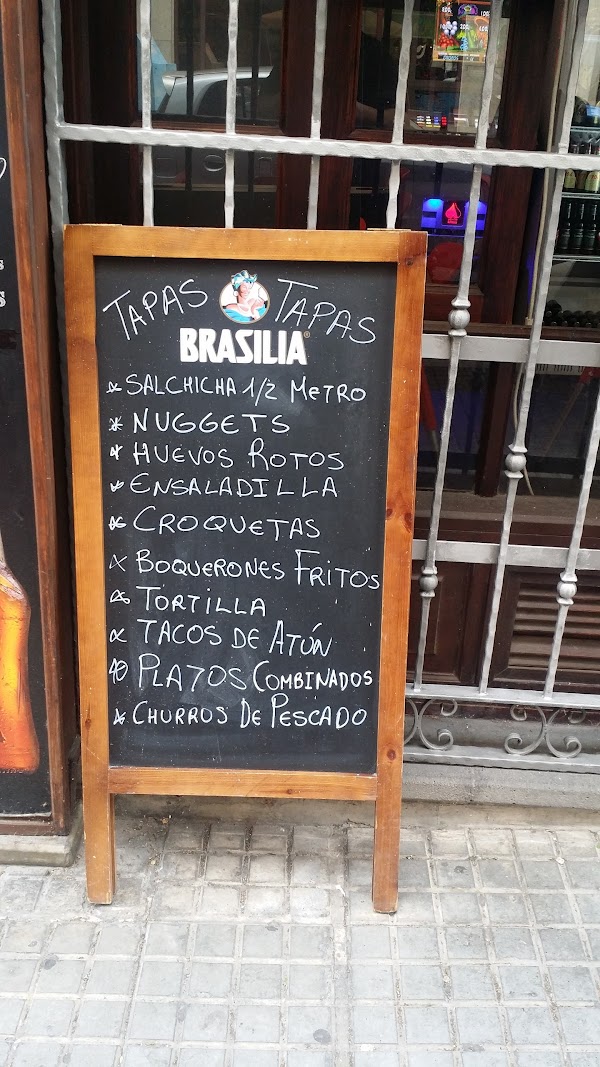 TAPAS TAPAS
BRASILIA
SALCHICHA 1/2 METRO
NUGGETS
HUEVOS ROTOS
ENSALADILLA
CROQUETAS
BOQUERONES FRITOS
TORTILLA
TACOS DE ATÚN
PLATOS COMBINADOS
CHURROS DE PESCADO